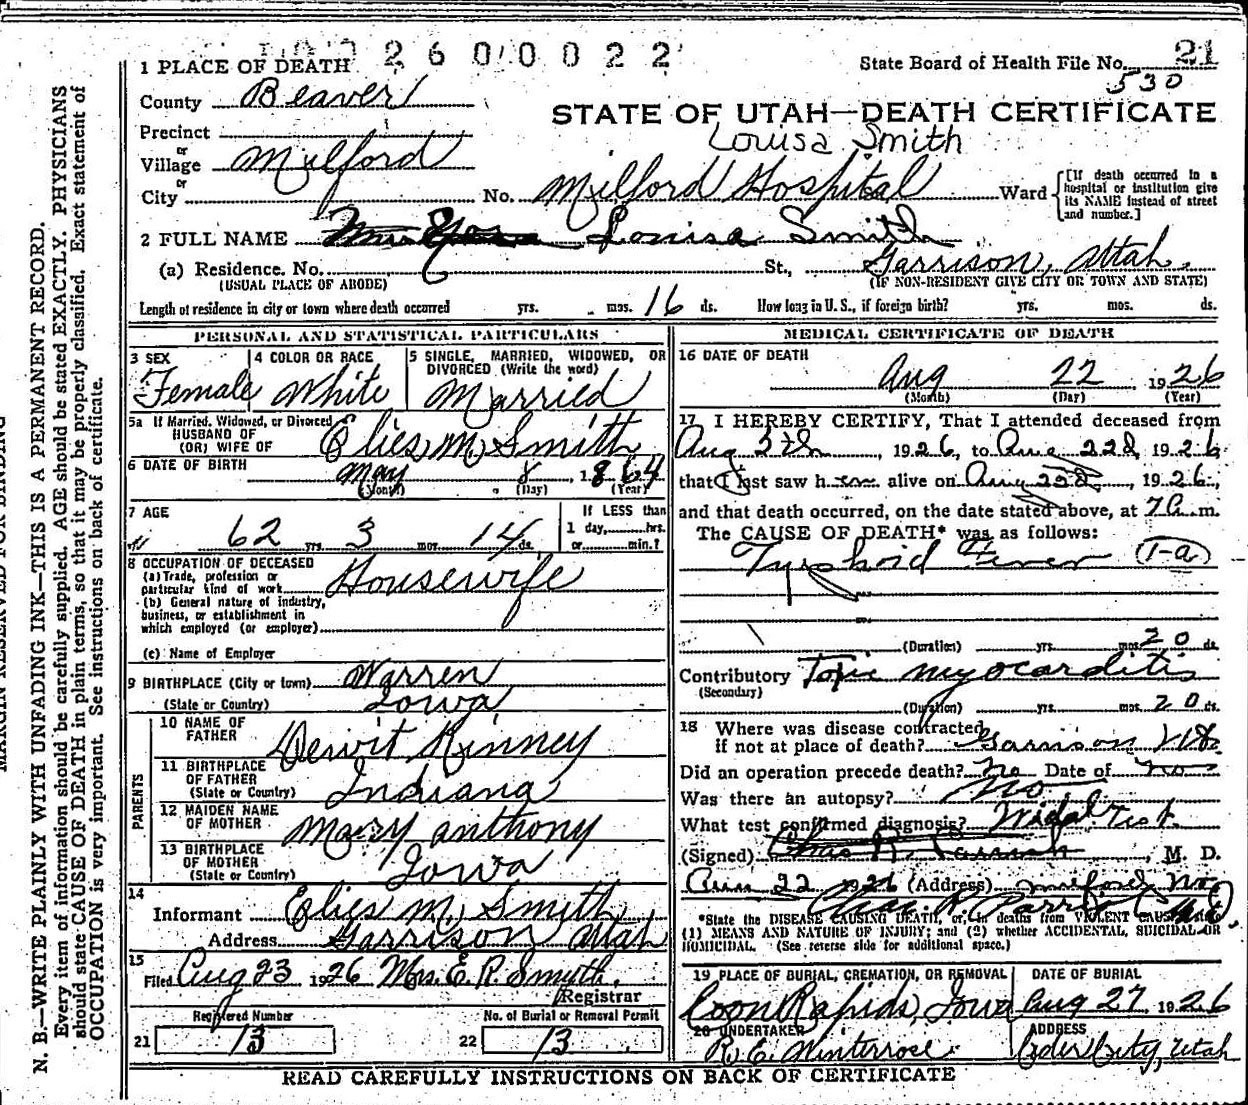 2600022
1 PLACE OF DEATH
State Board of Health File No. 21
530
County Beaver
STATE OF UTAH—DEATH CERTIFICATE
Precinct
Louisa Smith
or
Village Milford
or
City
No. Milford Hospital Ward
[If death occurred in a hospital or institution give its NAME instead of street and number.]
2 FULL NAME Louisa Smith
(a) Residence. No. St., Garrison, Utah.
(USUAL PLACE OF ABODE) (IF NON-RESIDENT GIVE CITY OR TOWN AND STATE)
Length of residence in city or town where death occurred yrs. mos. 16 ds. How long in U. S., if foreign birth? yrs. mos. ds.
PERSONAL AND STATISTICAL PARTICULARS
3 SEX
Female
4 COLOR OR RACE
White
5 SINGLE, MARRIED, WIDOWED, OR DIVORCED (Write the word)
Married
5a If Married, Widowed, or Divorced
HUSBAND OF
(OR) WIFE OF Elies M. Smith
6 DATE OF BIRTH May 8, 1864
(Month) (Day) (Year)
7 AGE
62 yrs. 3 mos. 14 ds.
If LESS than
1 day, hrs.
or min.?
8 OCCUPATION OF DECEASED
(a) Trade, profession or
particular kind of work Housewife
(b) General nature of industry,
business, or establishment in
which employed (or employer)
(c) Name of Employer
9 BIRTHPLACE (City or town) Warren
(State or Country) Iowa
PARENTS
10 NAME OF
FATHER Dewit Kinney
11 BIRTHPLACE
OF FATHER
(State or Country) Indiana
12 MAIDEN NAME
OF MOTHER Mary Anthony
13 BIRTHPLACE
OF MOTHER
(State or Country) Iowa
14
Informant Elies M. Smith
Address Garrison Utah
15
Filed Aug 23 1926 Mrs. E. R. Smyth.
Registrar
Registered Number
21 13
No. of Burial or Removal Permit
22 13
MEDICAL CERTIFICATE OF DEATH
16 DATE OF DEATH
Aug 22, 1926
(Month) (Day) (Year)
17 I HEREBY CERTIFY, That I attended deceased from
Aug 5th, 1926, to Aug 22d, 1926
that I last saw h er alive on Aug 22d, 1926,
and that death occurred, on the date stated above, at 7 a. m.
The CAUSE OF DEATH* was as follows:
Typhoid Fever (1-a)
(Duration) yrs. mos. 20 ds.
Contributory Toxic myocarditis
(Secondary)
(Duration) yrs. mos. 20 ds.
18 Where was disease contracted
if not at place of death? Garrison Ut.
Did an operation precede death? No Date of no
Was there an autopsy? No
What test confirmed diagnosis? Widal Test
(Signed) Chas R. Parrish, M. D.
Aug 22 1926 (Address) Milford
Chas. R. Parrish M.D.
*State the DISEASE CAUSING DEATH, or, in deaths from VIOLENT CAUSES, state
(1) MEANS AND NATURE OF INJURY; and (2) whether ACCIDENTAL, SUICIDAL OR
HOMICIDAL. (See reverse side for additional space.)
19 PLACE OF BURIAL, CREMATION, OR REMOVAL
Coon Rapids, Iowa
DATE OF BURIAL
Aug 27 1926
20 UNDERTAKER
R. E. Winterrose
ADDRESS
Cedar City, Utah
READ CAREFULLY INSTRUCTIONS ON BACK OF CERTIFICATE
MARGIN RESERVED FOR BINDING
N. B.—WRITE PLAINLY WITH UNFADING INK—THIS IS A PERMANENT RECORD.
Every item of information should be carefully supplied. AGE should be stated EXACTLY. PHYSICIANS
should state CAUSE OF DEATH in plain terms, so that it may be properly classified. Exact statement of
OCCUPATION is very important. See instructions on back of certificate.